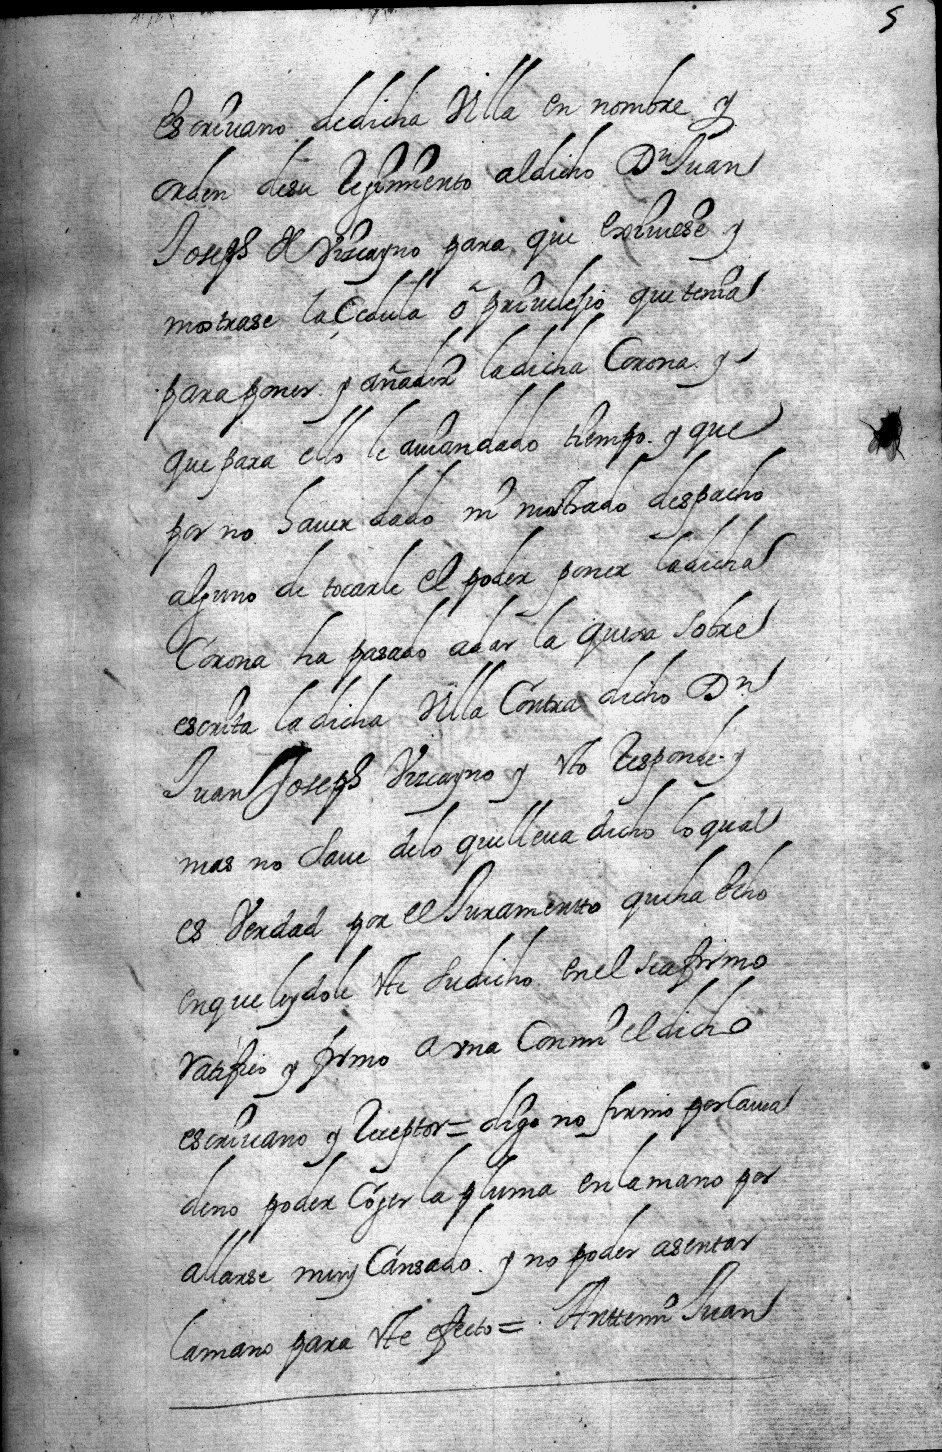 5
escriuano dedicha Villa en nombre y
orden desu Regimiento aldicho Dn Juan
Joseph de Vizcayno para que exsiuiese y
mostrase la Çedula ô priuilejio que tenia
para poner y añadir ladicha Corona y
que para ello le aueandado tiempo y que
por no hauer dado ni mostrado despacho
alguno de tocarle el poder poner ladicha
Corona ha pasado adar la quexa sobre
escrita ladicha Villa Contra dicho Dn
Juan Joseph Vizcayno y esto Responde y
mas no saue delo quelleua dicho lo qual
es Verdad por el Juramento queha echo
enque leydole este sudicho enel seafirmo
ratifico y firmo a vna Conmi el dicho
escriuano y Receptor = digo no firmo por Causa
deno poder Cojer la pluma enlamano por
allarse muy Cansado y no poder asentar
lamano para este efecto = Anttemi Juan